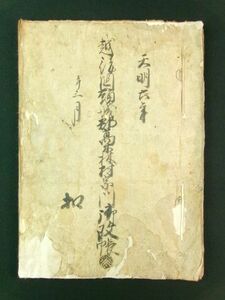 天明六年
越後国頸城郡高森村家別御改帳
午二月
扣